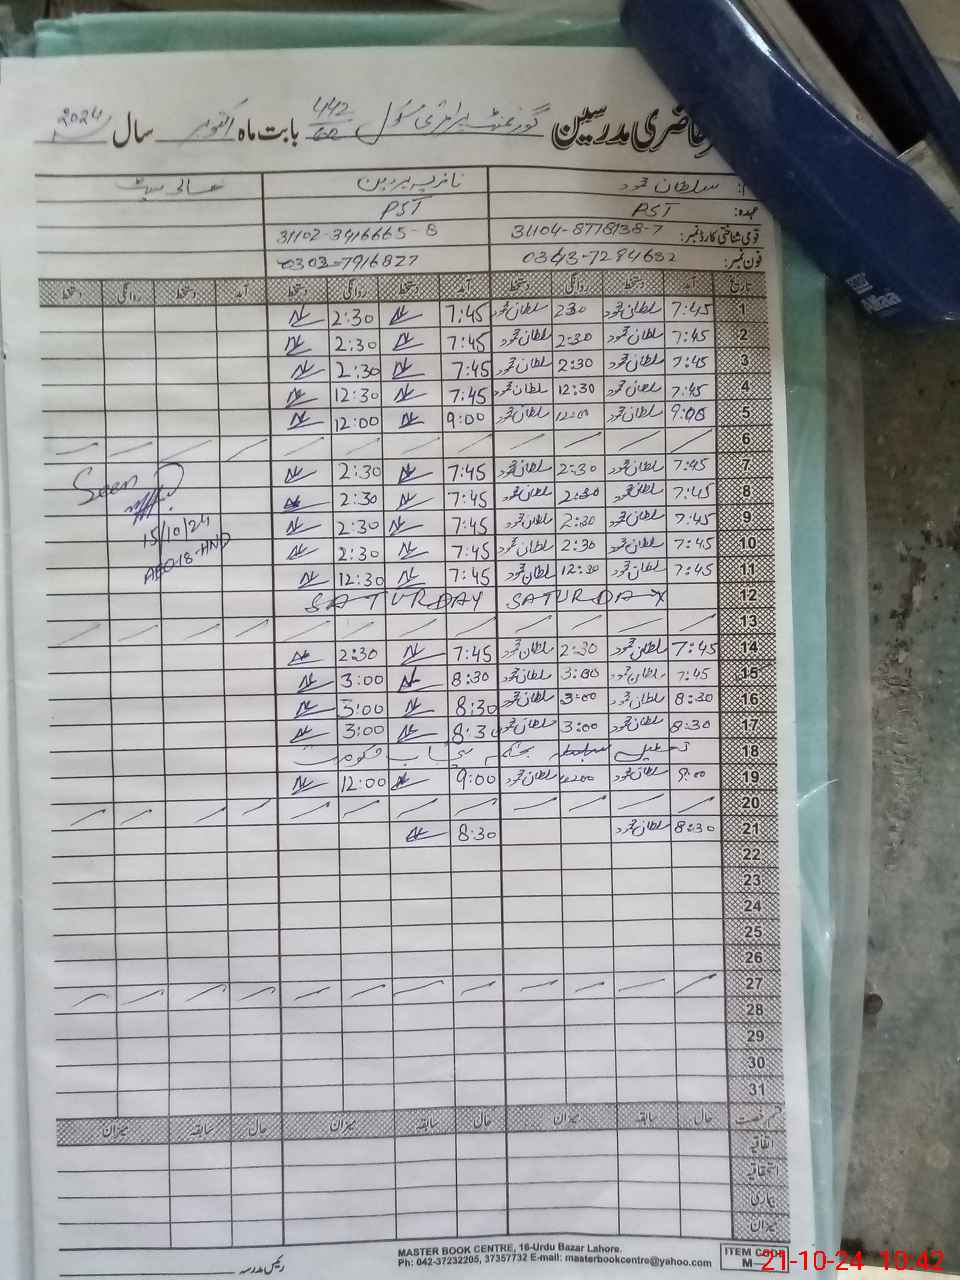 حاضری مدرسین گورنمنٹ پرائمری سکول 442/6R بابت ماہ اکتوبر سال 2024
سلطان محمود نازیہ پروین خالی سیٹ
عہدہ: PST PST
قومی شناختی کارڈ نمبر: 31104-8778138-7 31102-3416665-8
فون نمبر: 0343-7294652 0303-7916827
تاریخ آمد دستخط روانگی دستخط آمد دستخط روانگی دستخط آمد دستخط روانگی دستخط
1 7:45 سلطان محمود 2:30 سلطان محمود 7:45 2:30
2 7:45 سلطان محمود 2:30 سلطان محمود 7:45 2:30
3 7:45 سلطان محمود 2:30 سلطان محمود 7:45 2:30
4 7:45 سلطان محمود 12:30 سلطان محمود 7:45 12:30
5 9:00 سلطان محمود 12:00 سلطان محمود 9:00 12:00
6
7 7:45 سلطان محمود 2:30 سلطان محمود 7:45 2:30 Seen
8 7:45 سلطان محمود 2:30 سلطان محمود 7:45 2:30
9 7:45 سلطان محمود 2:30 سلطان محمود 7:45 2:30 15/10/24
10 7:45 سلطان محمود 2:30 سلطان محمود 7:45 2:30 AEO-18-HND
11 7:45 سلطان محمود 12:30 سلطان محمود 7:45 12:30
12 SATURDAY SATURDAY
13
14 7:45 سلطان محمود 2:30 سلطان محمود 7:45 2:30
15 7:45 سلطان محمود 3:00 سلطان محمود 8:30 3:00
16 8:30 سلطان محمود 3:00 سلطان محمود 8:30 3:00
17 8:30 سلطان محمود 3:00 سلطان محمود 8:3 3:00
18 تعطیل بحکم پنجاب حکومت
19 9:00 سلطان محمود 12:00 سلطان محمود 9:00 12:00
20
21 8:30 سلطان محمود 8:30
22
23
24
25
26
27
28
29
30
31
حال سابقہ میزان حال سابقہ میزان حال سابقہ میزان
اتفاقیہ
استحقاقیہ
بیماری
میزان
رئیس مدرسہ
MASTER BOOK CENTRE, 16-Urdu Bazar Lahore.
Ph: 042-37232205, 37357732 E-mail: masterbookcentre@yahoo.com
ITEM CODE
M-
21-10-24 10:42